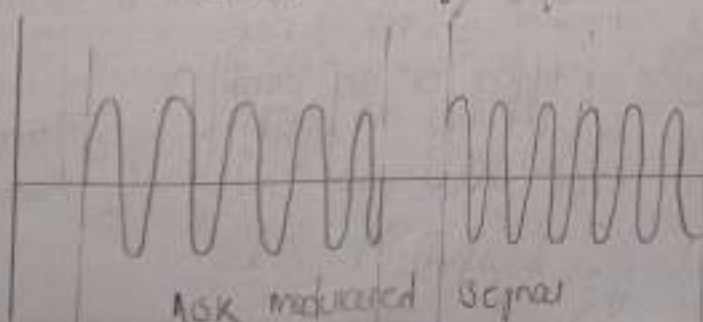 ASK modulated signal